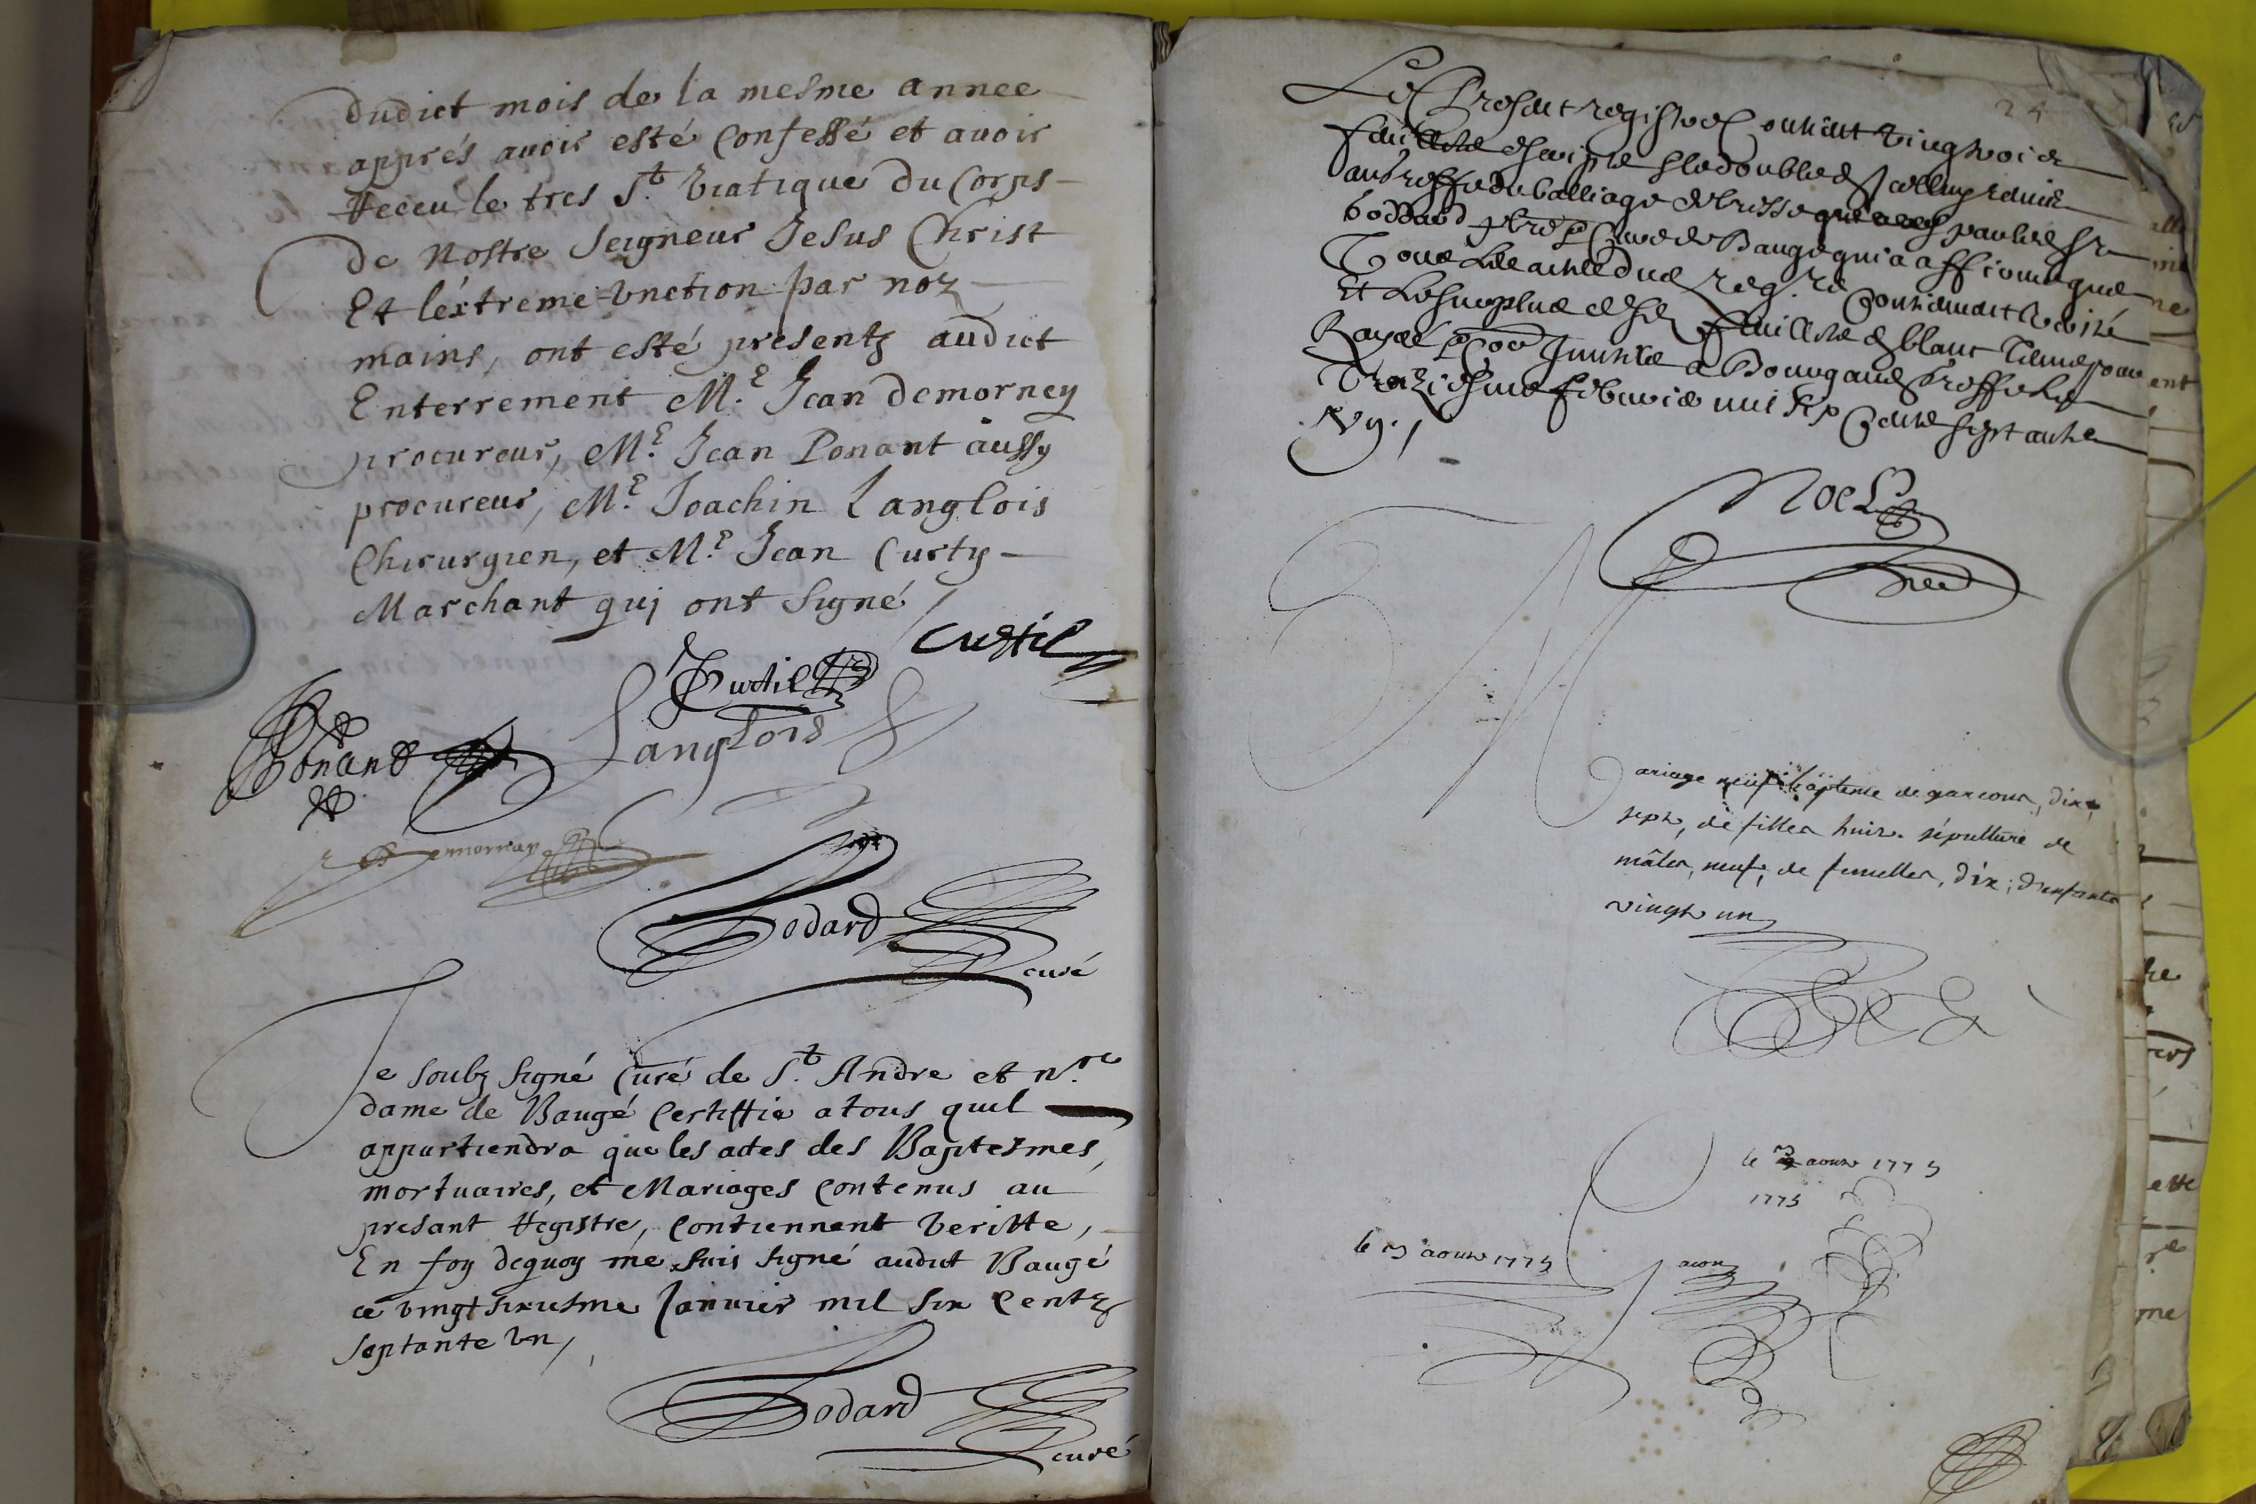 dudict mois de la mesme annee
apprés avoir esté Confessé et avoir
Receu le tres St. Viatique du Corps
de Nostre Seigneur Jesus Christ
Et léxtreme-Unction par noz
mains, ont esté presentz audict
Enterrement Me. Jean Demorney
procureur, Me. Jean Ponant aussy
procureur, Me. Joachin Langlois
Chirurgien, et Me. Jean Curty
Marchant quj ont Signé
Curtil
Curtil
Langlois
Ponant
Demornay
Bodard
curé
Je soubz signé Curé de St. Andre et Nre
dame de Baugé Certiffie a tous quil
appartiendra que les actes des Baptesmes,
mortuaires, et Mariages Contenus au
presant Registre, Contiennent Veritte,
En foy dequoy me suis signé audict Baugé
ce vingt sixiesme Janvier mil six Centz
Septante Un,
Bodard
curé
24
Le Present registre Contient Vingt trois
au greffe du balliage de bresse par le Sr
boddard pbre Curé de Baugé qui a affirmé que
Tous Les actes dud. Reg.re
Et Le surplus feuillets blanc
Rayé a Bourg au greffe le
Treziesme febvrier mil six Cents septante
Noel
Mariage neuf baptême de garcons, dix
sept, de filles huit. sépulture de
mâles, neuf, de femelles, dix ; d'enfants
vingt un
le aoust 1775
1775
le aoust 1775